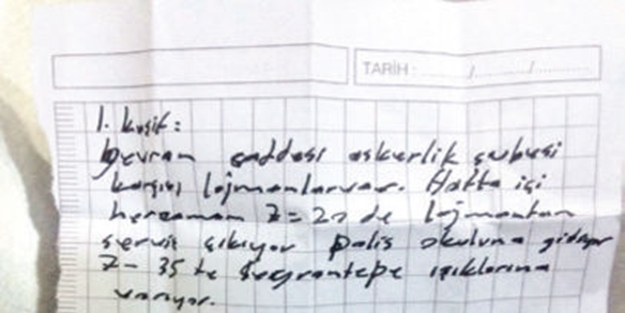 TARİH : ....... / ....... / .......
1. keşif :
Gevran caddesi askerlik şubesi
karşısı lojmanlar var. Hafta içi
her zaman 7=20 de lojmandan
servis çıkıyor polis okuluna gidiyor
7- 35 te Seyrantepe ışıklarına
varıyor.